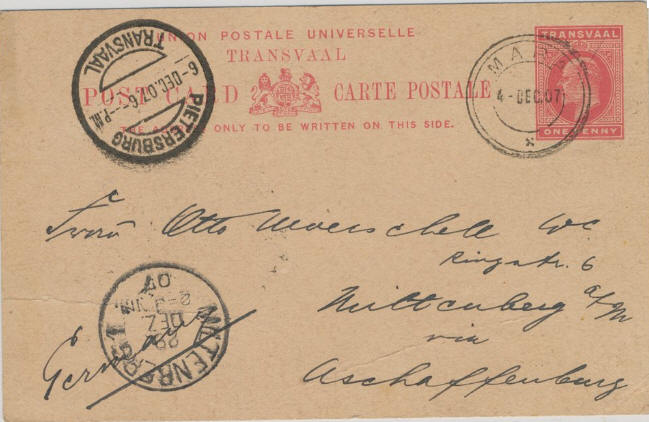 UNION POSTALE UNIVERSELLE
TRANSVAAL
POST CARD CARTE POSTALE
THE ADDRESS ONLY TO BE WRITTEN ON THIS SIDE.
TRANSVAAL
ONE PENNY
PIETERSBURG
TRANSVAAL
6 DEC.07.6-P.M
4-DEC.07
x
Frau Otto
Ringstr. 6
Miltenberg a/M
via
Aschaffenburg
Germany
MILTENBERG
29
DEZ
07